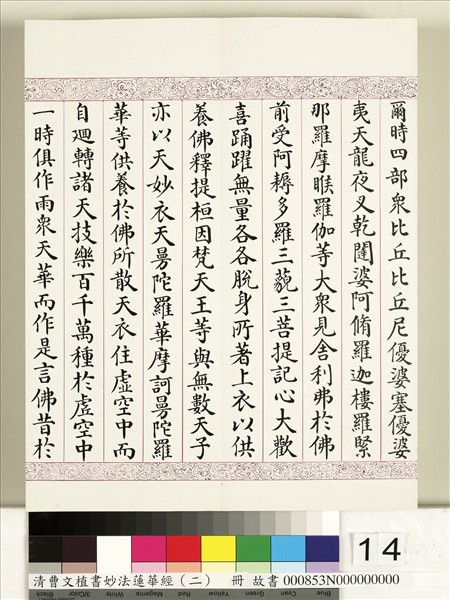 爾時四部衆比丘比丘尼優婆塞優婆
夷天龍夜叉乾闥婆阿脩羅迦樓羅緊
那羅摩睺羅伽等大衆見舍利弗於佛
前受阿耨多羅三藐三菩提記心大歡
喜踊躍無量各各脫身所著上衣以供
養佛釋提桓因梵天王等與無數天子
亦以天妙衣天曼陀羅華摩訶曼陀羅
華等供養於佛所散天衣住虛空中而
自迴轉諸天技樂百千萬種於虛空中
一時俱作雨衆天華而作是言佛昔於
14
Black
3/Color
White
Magenta
Red
Yellow
Green
Cyan
Blue
清曹文植書妙法蓮華經（二） 冊 故書 000853N000000000